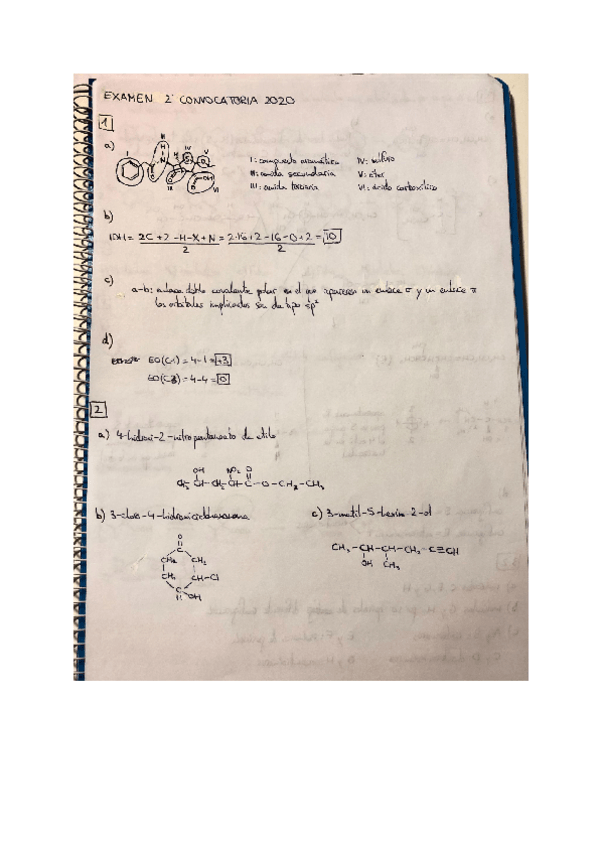 EXAMEN 2ª CONVOCATORIA 2020
1
a)
I II III IV V VI
I: compuesto aromático IV: sulfuro
II: amida secundaria V: éter
III: amida terciaria VI: ácido carboxílico
b)
IDH = 2C+2-H-X+N / 2 = 2·16+2-16-0+2 / 2 = 10
c)
a-b: enlace doble covalente polar en el que aparecen un enlace σ y un enlace π
los orbitales implicados son de tipo sp²
d)
EO(C1) = 4-1 = +3
EO(C3) = 4-4 = 0
2
a) 4-hidroxi-2-nitropentanoato de etilo
OH NO₂ O
CH₃-CH-CH₂-CH-C-O-CH₂-CH₃
b) 3-cloro-4-hidroxiciclohexanona c) 3-metil-5-hexin-2-ol
O
C
CH₂ CH₂
CH₂ CH-Cl
C OH
CH₃-CH-CH-CH₂-C≡CH
OH CH₃